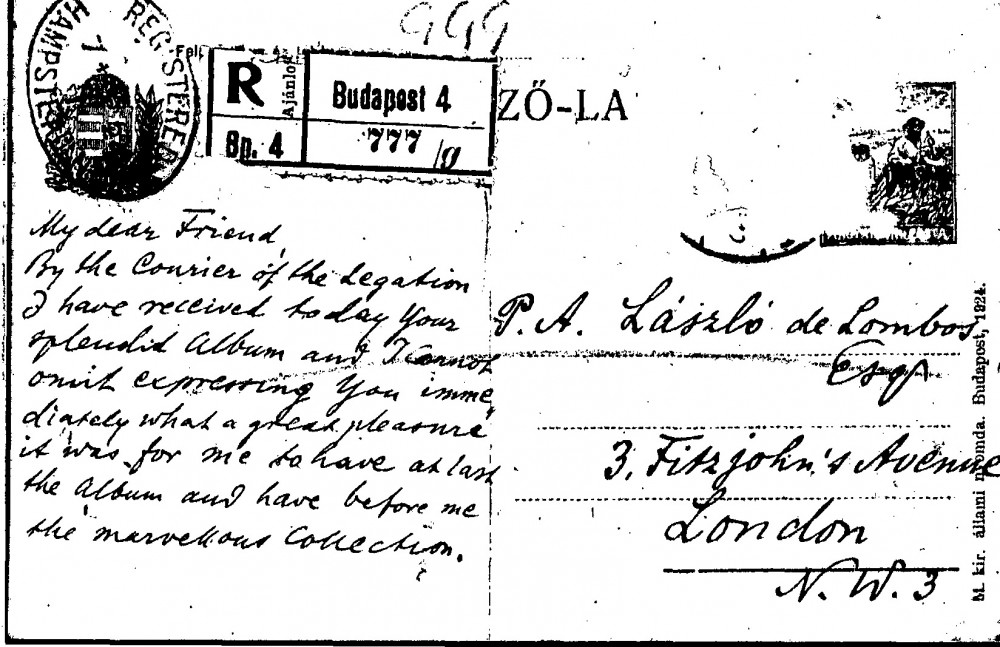 REGISTERED
HAMPSTE
999
R
Ajánlo
Budapest 4
Bp. 4
777
/g
ZŐ-LA
My dear Friend,
By the Courier of the Legation
I have received today Your
splendid Album and I cannot
omit expressing You imme
diately what a great pleasure
it was for me to have at last
the Album and have before me
the marvellous Collection.
P. A. László de Lombos
Esqr
3, Fitzjohn's Avenue
London
N. W. 3
M. kir. állami nyomda. Budapest, 1924.